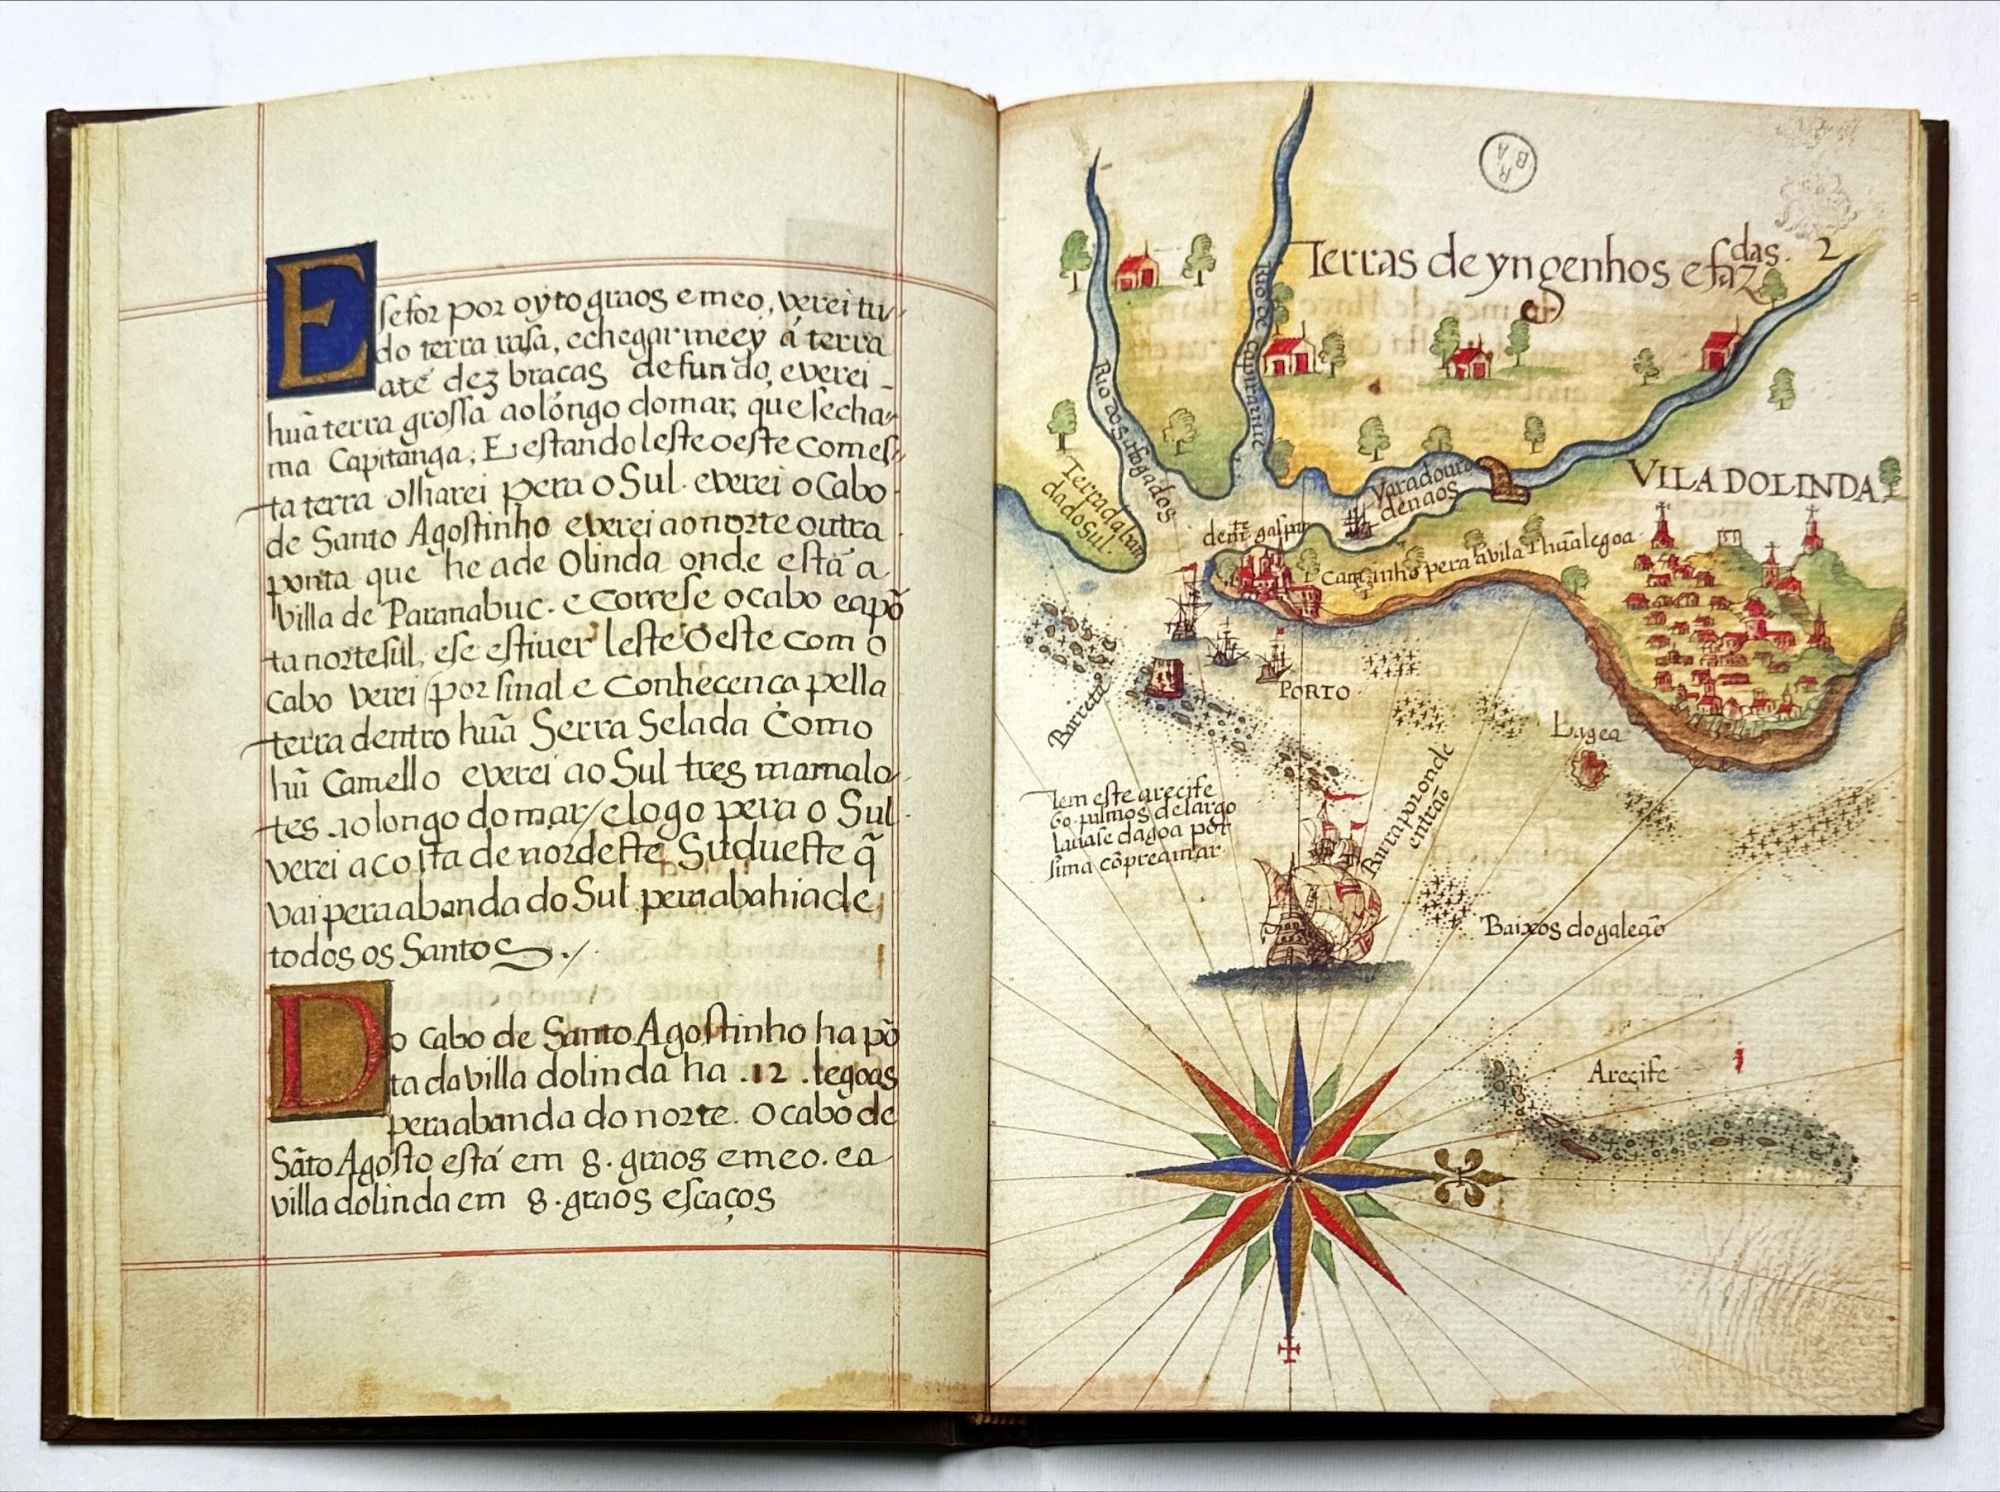 E se for por oyto graos e meo, verei tu-
do terra rasa, e chegarmeey á terra
até dez braças de fundo, e verei
huã terra grossa ao longo do mar, que se cha-
ma Capitanga; E estando leste oeste com es-
ta terra olharei pera o Sul. e verei o Cabo
de Santo Agostinho e verei ao norte outra
ponta que he a de Olinda onde está a
villa de Paranabuc. e corre se o cabo e a põ
ta norte sul, e se estiver leste Oeste com o
cabo verei por sinal e Conheçença pella
terra dentro huã Serra Selada Como
hũ Camello e verei ao Sul tres mamalo-
tes ao longo do mar / e logo pera o Sul
verei a costa de nordeste Sudueste q̃
vai pera a banda do Sul pera a bahia de
todos os Santos ./
Do cabo de Santo Agostinho ha põ
ta da villa dolinda ha .12 .legoas
pera a banda do norte. O cabo de
Sãto Agosto está em 8. graos e meo. e a
villa dolinda em 8. graos escaços
R BA
Terras de yngenhos e faz das. 2
Rio dos afogados
Rio de capivarive
Terra da banda do Sul.
Varadouro
de naos
VILA DOLINDA
Caminho pera a vila I huã legoa
PORTO
Barreta
Lagea
Tem este areçife
60. palmos de largo
lavase dagoa por
sima cõ preamar.
Barra por onde
entrão
Baixos do galeaõ
Areçife